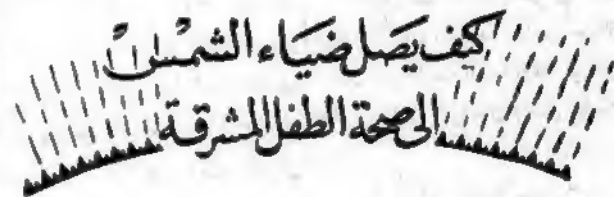 كيف يصل ضياء الشمس
الى صحة الطفل المشرقة